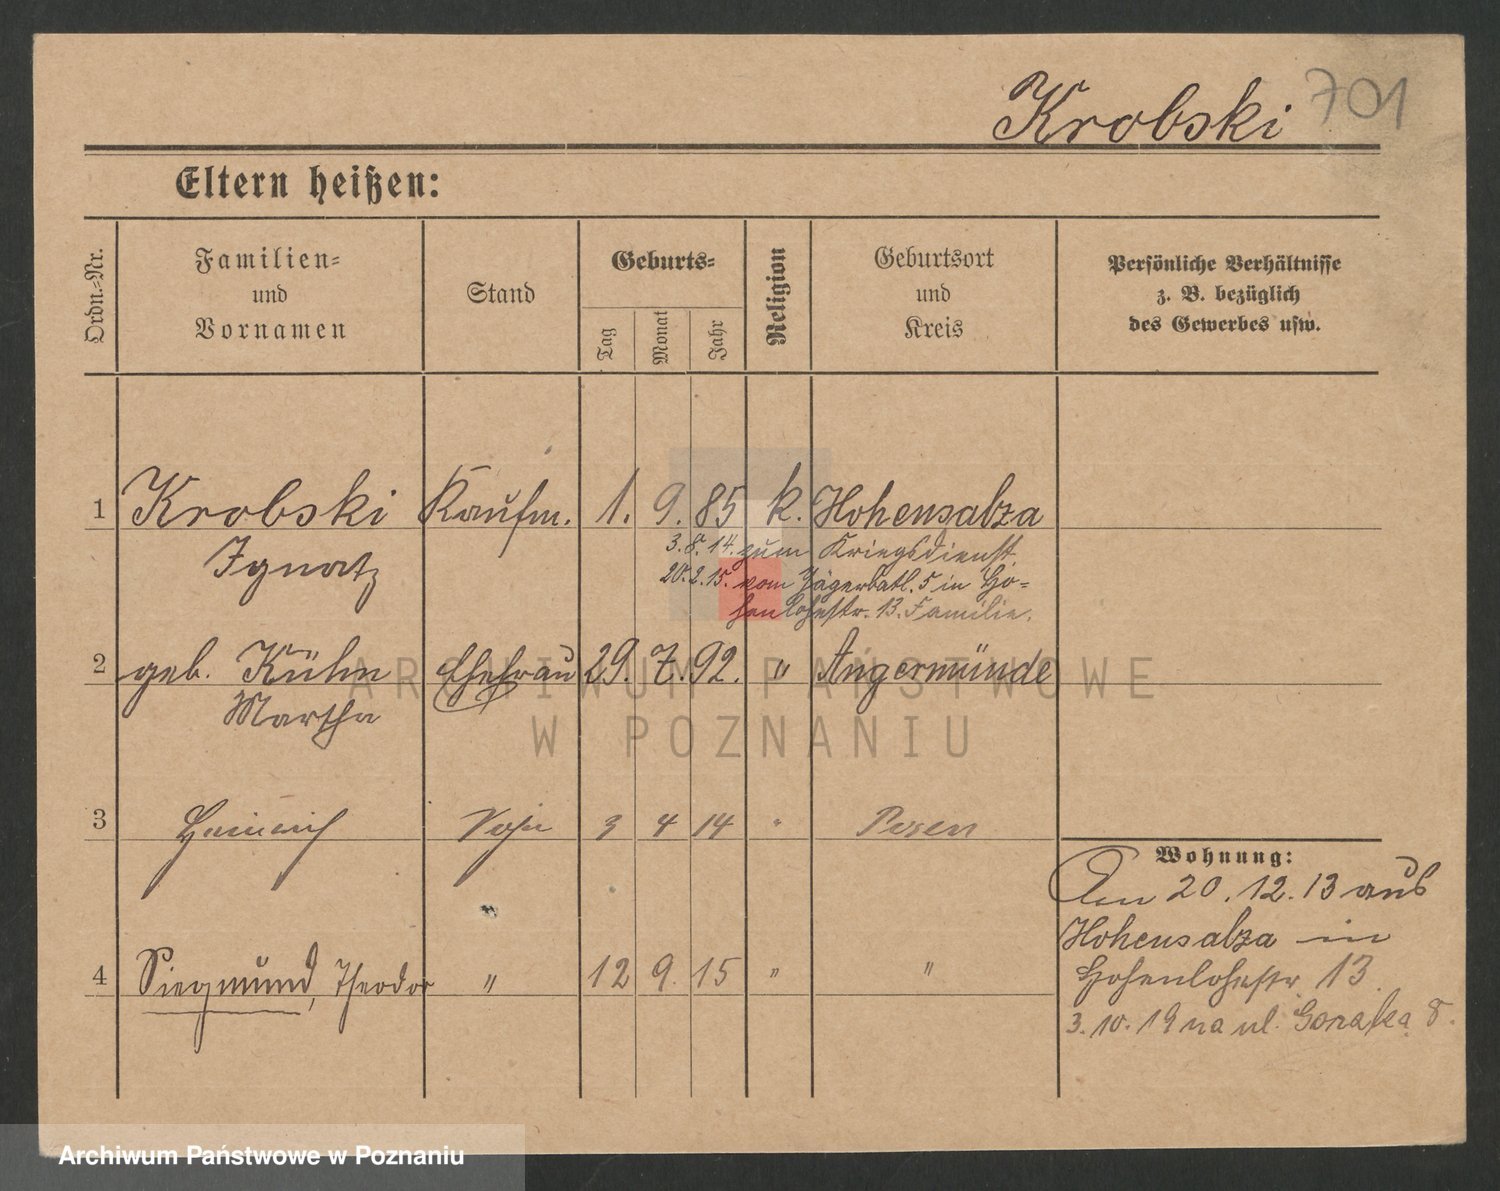 Krobski 701
Eltern heißen:
Ordn.-Nr.
Familien-
und
Vornamen
Stand
Geburts-
Tag
Monat
Jahr
Religion
Geburtsort
und
Kreis
Persönliche Verhältnisse
z. B. bezüglich
des Gewerbes usw.
1 Krobski Kaufm. 1. 9. 85 k. Hohensalza
Ignatz
3.8.14. zum Kriegsdienst
20.2.15. vom Jägerbatl. 5 in Ho-
henlohestr. 13. Familie.
2 geb. Kühn Ehefrau 29. 7. 92. " Angermünde
Martha
3 Heinrich Sohn 3 4 14 " Posen
4 Siegmund, Theodor " 12 9. 15 " "
Wohnung:
Am 20.12.13 aus
Hohensalza in
Hohenlohestr 13.
3.10.19 na ul. 8.
ARCHIWUM PAŃSTWOWE
W POZNANIU
Archiwum Państwowe w Poznaniu